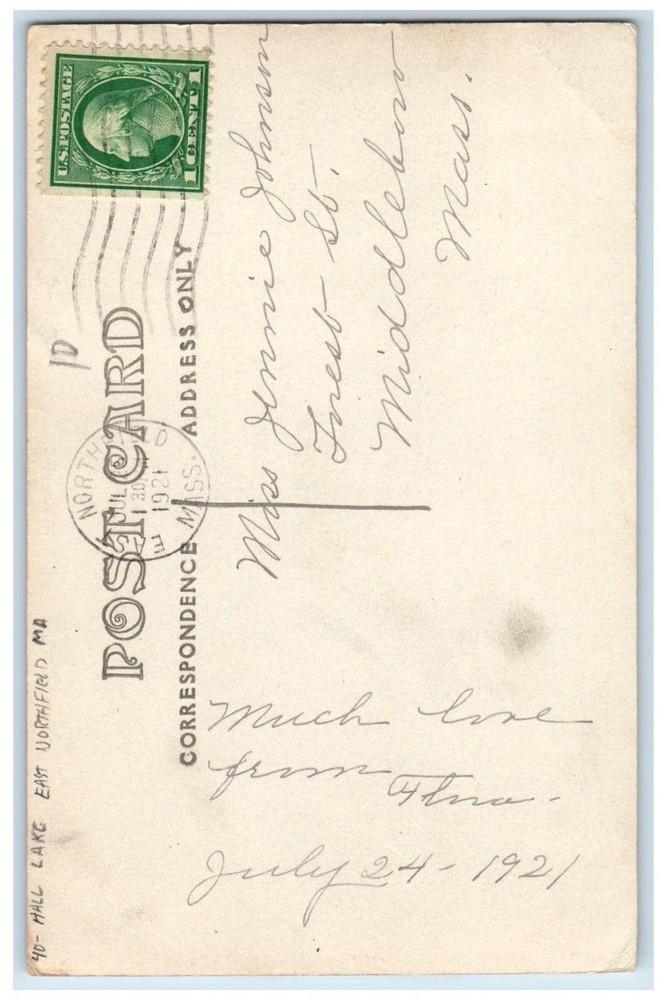 U.S. POSTAGE
1 CENT 1
10
POST CARD
CORRESPONDENCE ADDRESS ONLY
EAST NORTHFIELD MASS.
JUL
1 30
1921
Miss Jennie Johnson
Forest St.
Middleboro
Mass.
Much love
from
July 24 - 1921
40- HALL LAKE EAST NORTHFIELD MA